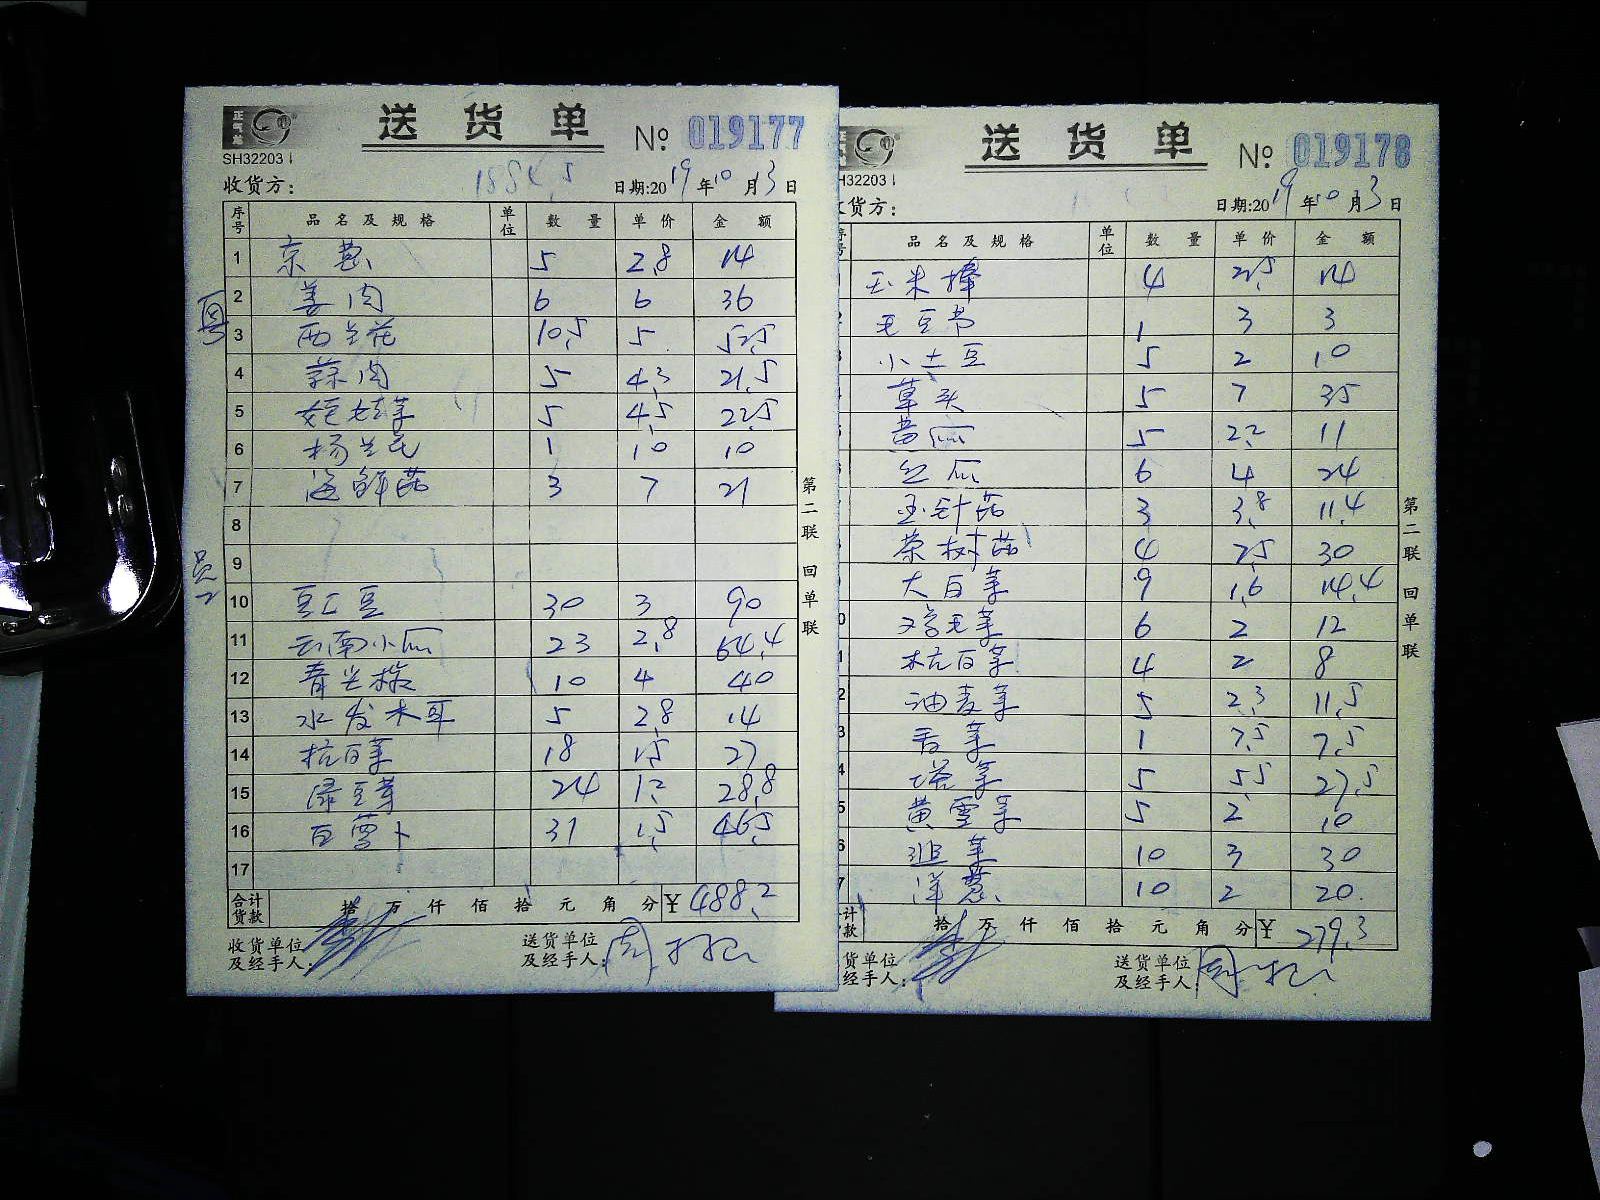 送货单
№ 019177
SH32203
1884.5
收货方：
日期:2019年10月3日
序号 品名及规格 单位 数量 单价 金额
1 京葱 5 2.8 14
2 姜肉 6 6 36
3 西兰花 10.5 5 52.5
4 蒜肉 5 4.3 21.5
5 娃娃菜 5 4.5 22.5
6 杨兰花 1 10 10
7 海鲜菇 3 7 21
8
9
10 豆豆 30 3 90
11 云南小瓜 23 2.8 64.4
12 青尖椒 10 4 40
13 水发木耳 5 2.8 14
14 杭白菜 18 1.5 27
15 绿豆芽 24 1.2 28.8
16 白萝卜 31 1.5 46.5
17
合计货款 拾万仟佰拾元角分 ¥488.2
收货单位及经手人：
送货单位及经手人：周
第二联 回单联
送货单
№ 019178
H32203
货方：
日期:2019年10月3日
品名及规格 单位 数量 单价 金额
玉米棒 4 3.5 14
毛豆节 1 3 3
小土豆 5 2 10
草头 5 7 35
黄瓜 5 2.2 11
丝瓜 6 4 24
金针菇 3 3.8 11.4
茶树菇 4 7.5 30
大白菜 9 1.6 14.4
鸡毛菜 6 2 12
杭白菜 4 2 8
油麦菜 5 2.3 11.5
香菜 1 7.5 7.5
塔菜 5 5.5 27.5
黄豆芽 5 2 10
菜 10 3 30
洋葱 10 2 20
计款 拾万仟佰拾元角分 ¥279.3
货单位经手人：
送货单位及经手人：周
第二联 回单联